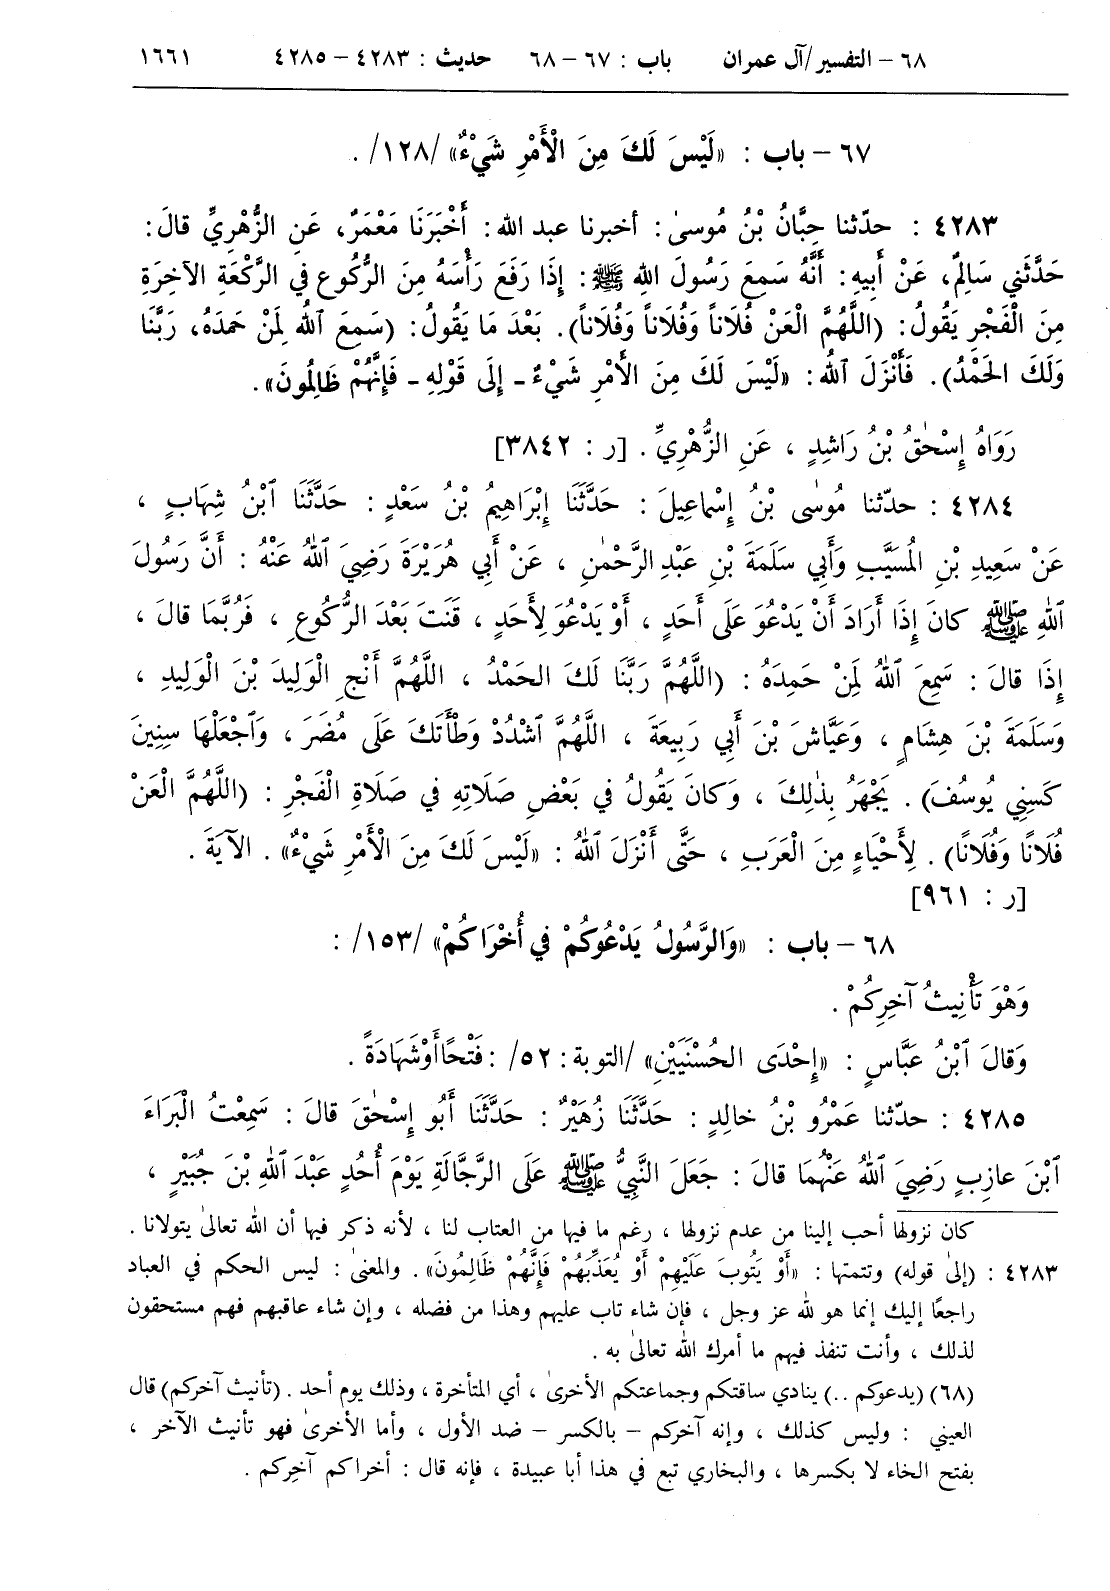 ٦٨ – التفسير/آل عمران باب : ٦٧ – ٦٨ حديث : ٤٢٨٣ – ٤٢٨٥ ١٦٦١
٦٧ – باب : «لَيْسَ لَكَ مِنَ الْأَمْرِ شَيْءٌ» /١٢٨/ .
٤٢٨٣ : حدّثنا حِبَّانُ بْنُ مُوسىٰ : أخبرنا عبد الله : أَخْبَرَنَا مَعْمَرٌ، عَنِ الزُّهْرِيِّ قالَ :
حَدَّثَنِي سَالِمٌ، عَنْ أَبِيهِ : أَنَّهُ سَمِعَ رَسُولَ اللهِ ﷺ : إِذَا رَفَعَ رَأْسَهُ مِنَ الرُّكُوعِ في الرَّكْعَةِ الآخِرَةِ
مِنَ الْفَجْرِ يَقُولُ : (اللَّهُمَّ الْعَنْ فُلَاناً وَفُلَاناً وَفُلَاناً). بَعْدَ مَا يَقُولُ : (سَمِعَ ٱللهُ لِمَنْ حَمِدَهُ، رَبَّنَا
وَلَكَ الحَمْدُ). فَأَنْزَلَ ٱللهُ : «لَيْسَ لَكَ مِنَ الأَمْرِ شَيْءٌ ـ إِلَى قَوْلِهِ ـ فَإِنَّهُمْ ظَالِمُونَ».
رَوَاهُ إِسْحٰقُ بْنُ رَاشِدٍ ، عَنِ الزُّهْرِيِّ . [ر : ٣٨٤٢]
٤٢٨٤ : حدّثنا مُوسٰى بْنُ إِسْماعِيلَ : حَدَّثَنَا إِبْرَاهِيمُ بْنُ سَعْدٍ : حَدَّثَنَا ٱبْنُ شِهَابٍ ،
عَنْ سَعِيدِ بْنِ المُسَيَّبِ وَأَبِي سَلَمَةَ بْنِ عَبْدِ الرَّحْمٰنِ ، عَنْ أَبِي هُرَيْرَةَ رَضِيَ ٱللهُ عَنْهُ : أَنَّ رَسُولَ
ٱللهِ ﷺ كانَ إِذَا أَرَادَ أَنْ يَدْعُوَ عَلَى أَحَدٍ ، أَوْ يَدْعُوَ لِأَحَدٍ ، قَنَتَ بَعْدَ الرُّكُوعِ ، فَرُبَّمَا قالَ ،
إِذَا قالَ : سَمِعَ ٱللهُ لِمَنْ حَمِدَهُ : (اللَّهُمَّ رَبَّنَا لَكَ الحَمْدُ ، اللَّهُمَّ أَنْجِ الْوَلِيدَ بْنَ الْوَلِيدِ ،
وَسَلَمَةَ بْنَ هِشَامٍ ، وَعَيَّاشَ بْنَ أَبِي رَبِيعَةَ ، اللَّهُمَّ ٱشْدُدْ وَطْأَتَكَ عَلَى مُضَرَ ، وَٱجْعَلْهَا سِنِينَ
كَسِنِي يُوسُفَ) . يَجْهَرُ بِذٰلِكَ ، وَكانَ يَقُولُ في بَعْضِ صَلَاتِهِ في صَلَاةِ الْفَجْرِ : (اللَّهُمَّ الْعَنْ
فُلَانًا وَفُلَانًا) . لِأَحْيَاءٍ مِنَ الْعَرَبِ ، حَتَّى أَنْزَلَ ٱللهُ : «لَيْسَ لَكَ مِنَ الْأَمْرِ شَيْءٌ» . الآيَةَ .
[ر : ٩٦١]
٦٨ – باب : «وَالرَّسُولُ يَدْعُوكُمْ في أُخْرَاكُمْ» /١٥٣/ :
وَهْوَ تَأْنِيثُ آخِرِكُمْ .
وَقالَ ٱبْنُ عَبَّاسٍ : «إِحْدَى الحُسْنَيَيْنِ» /التوبة : ٥٢/ : فَتْحًا أَوْ شَهَادَةً .
٤٢٨٥ : حدّثنا عَمْرُو بْنُ خالِدٍ : حَدَّثَنَا زُهَيْرٌ : حَدَّثَنَا أَبُو إِسْحٰقَ قالَ : سَمِعْتُ الْبَرَاءَ
ٱبْنَ عازِبٍ رَضِيَ ٱللهُ عَنْهُمَا قالَ : جَعَلَ النَّبِيُّ ﷺ عَلَى الرَّجَّالَةِ يَوْمَ أُحُدٍ عَبْدَ ٱللهِ بْنَ جُبَيْرٍ ،
كان نزولها أحب إلينا من عدم نزولها ، رغم ما فيها من العتاب لنا ، لأنه ذكر فيها أن الله تعالىٰ يتولانا .
٤٢٨٣ : (إلىٰ قوله) وتتمتها : «أَوْ يَتُوبَ عَلَيْهِمْ أَوْ يُعَذِّبَهُمْ فَإِنَّهُمْ ظَالِمُونَ». والمعنىٰ : ليس الحكم في العباد
راجعًا إليك إنما هو لله عز وجل ، فإن شاء تاب عليهم وهذا من فضله ، وإن شاء عاقبهم فهم مستحقون
لذلك ، وأنت تنفذ فيهم ما أمرك الله تعالىٰ به .
(٦٨) (يدعوكم ..) ينادي ساقتكم وجماعتكم الأخرىٰ ، أي المتأخرة ، وذلك يوم أحد . (تأنيث آخركم) قال
العيني : وليس كذلك ، وإنه آخركم – بالكسر – ضد الأول ، وأما الأخرىٰ فهو تأنيث الآخر ،
بفتح الخاء لا بكسرها ، والبخاري تبع في هذا أبا عبيدة ، فإنه قال : أخراكم آخِركم .